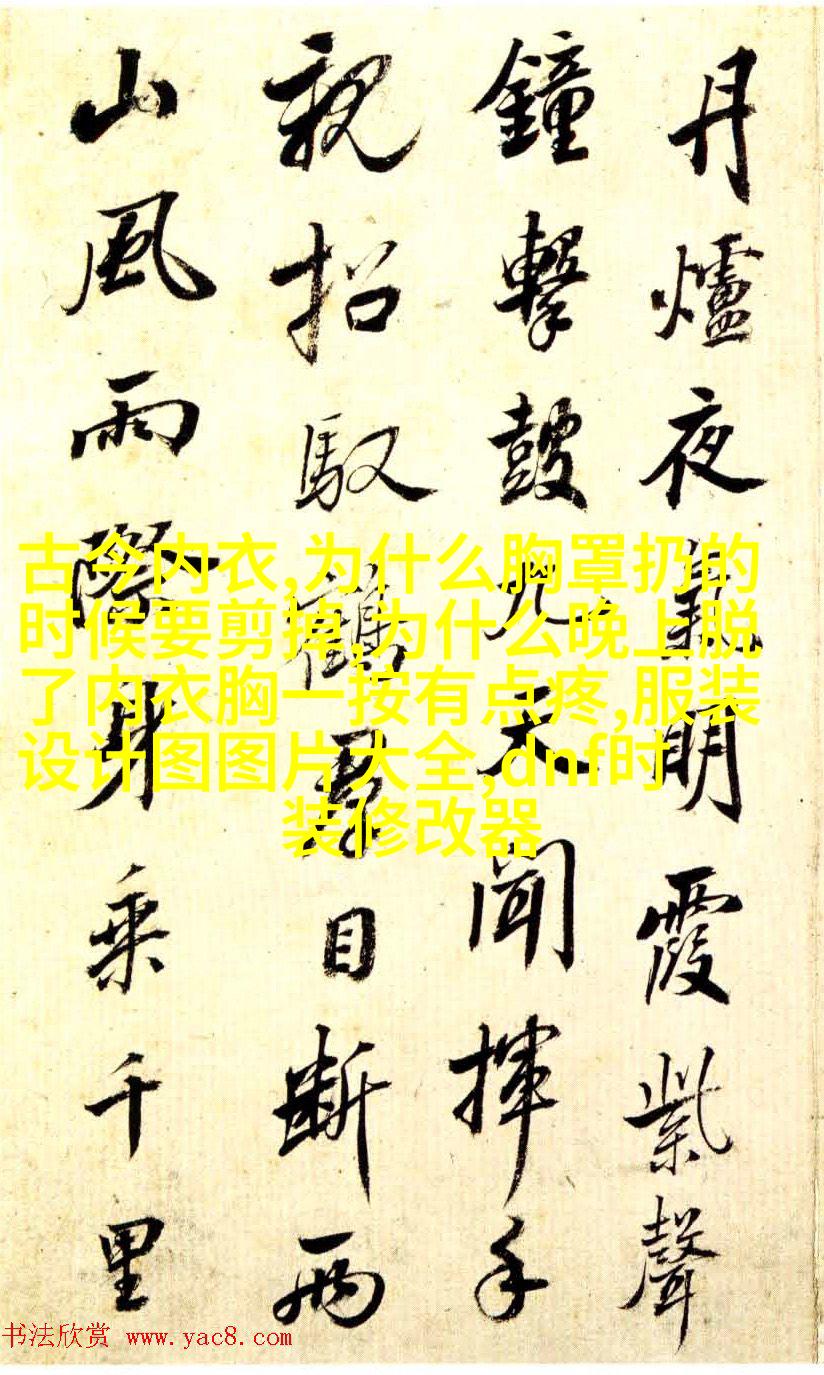 丹爐夜氣明霞紫聲
鐘擊鼓九天聞揮手
親招馭鶴羣目斷兩
山風雨際身乘千里
古今内衣,为什么胸罩扔的
时候要剪掉,为什么晚上脱
了内衣胸一按有点疼,服装
设计图图片大全,dnf时
装修改器
书法欣赏 www.yac8.com